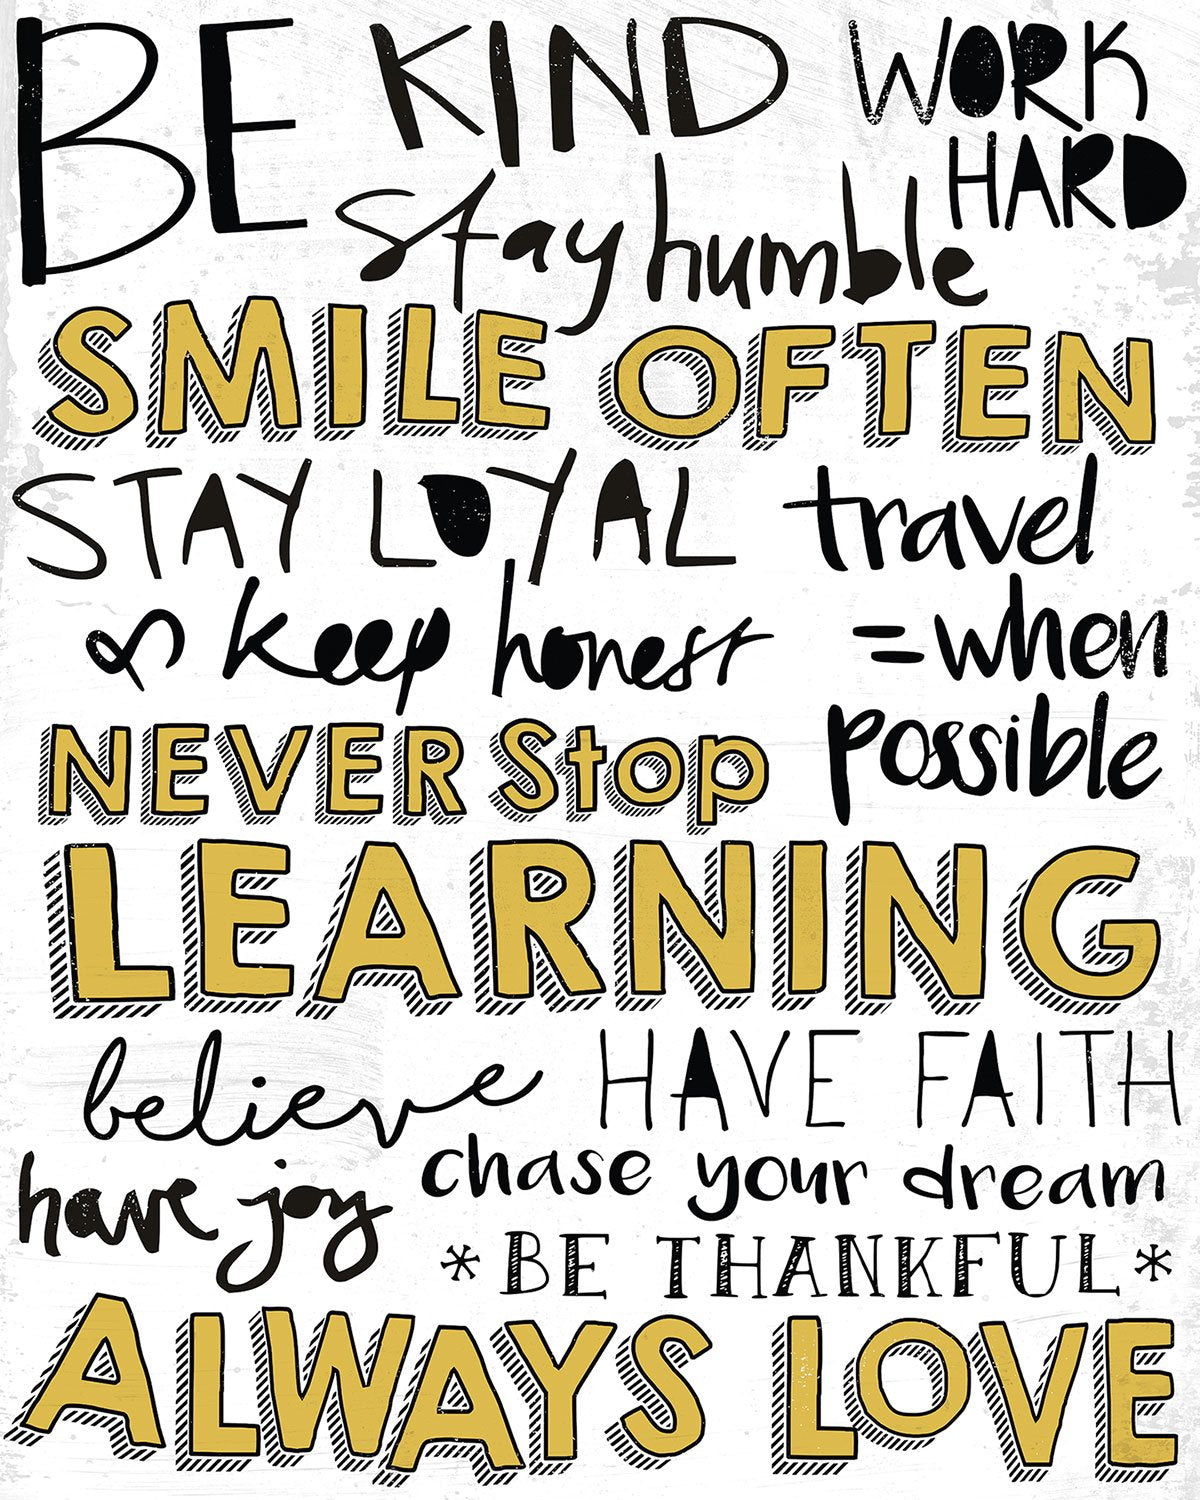 BE KIND
WORK
HARD
stay humble
SMILE OFTEN
STAY LOYAL
& keep honest
travel
=when
possible
NEVER Stop
LEARNING
believe
HAVE FAITH
have joy
chase your dream
*BE THANKFUL*
ALWAYS LOVE